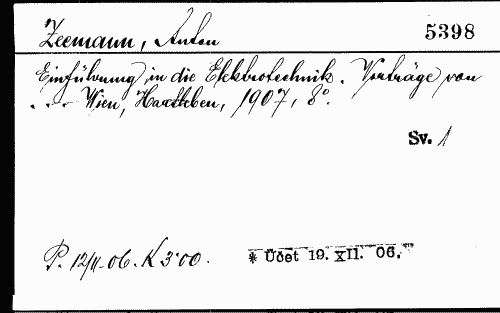 Zeemann, Anton 5398
Einführung in die Elektrotechnik. Vorträge von
. . . . Wien, Hartleben, 1907, 8°.
Sv. 1
P. 12/II. 06. K 3·00. * Účet 19. XII. 06. "